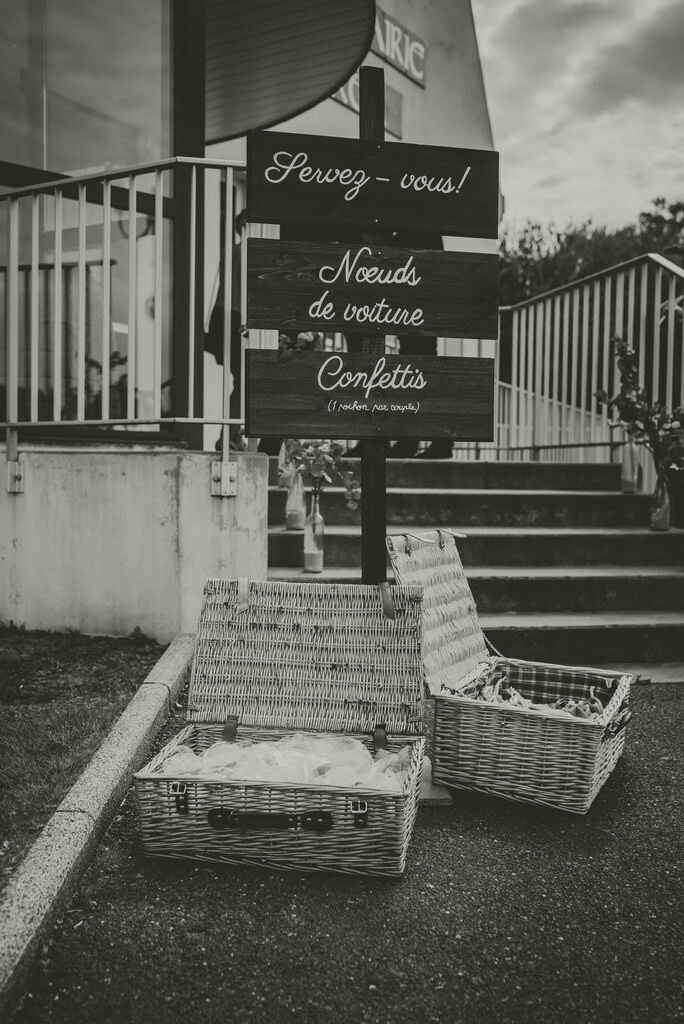 AIRIE
Servez-vous!
Nœuds
de voiture
Confettis
(1 pochon par couple)